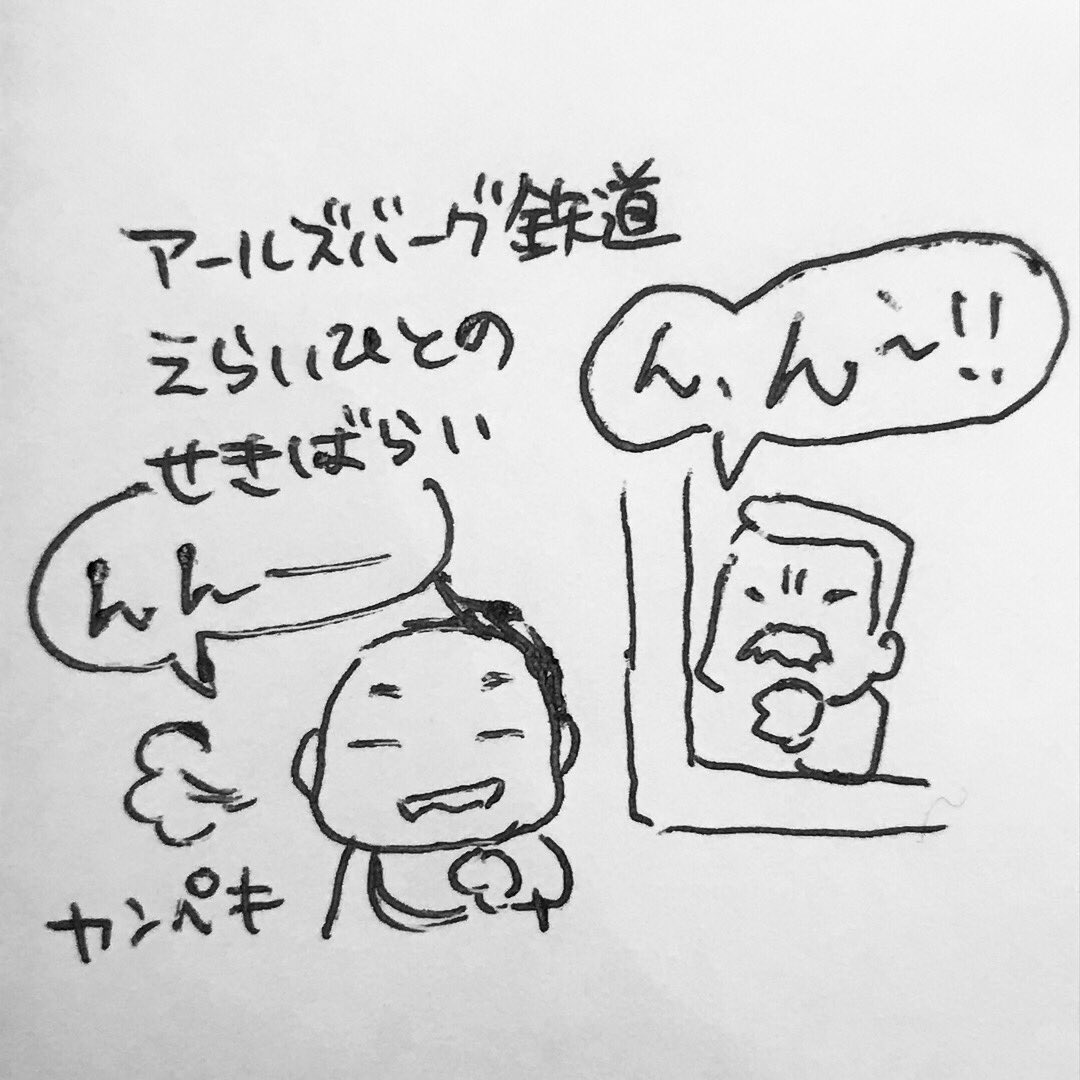 アールズバーグ鉄道
えらいひとの
せきばらい
ん、ん〜!!
んんー
カンペキ